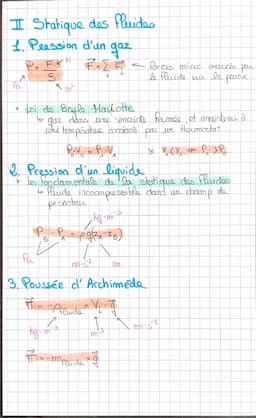 II Statique des fluides
1. Pression d'un gaz
P = F N
S
F = Σ f ← Forces micro exercées par
le fluide sur la paroi
Pa m²
• Loi de Boyle Mariotte
↳ gaz dans une enceinte fermée, et maintenu à
une température constante par un thermostat
P₁V₁ = P₂V₂
2. Pression d'un liquide
• loi fondamentale de la statique des fluides
↳ fluide incompressible dans un champ de
pesanteur
kg·m⁻³
P_B - P_A = ρg(z_A - z_B)
Pa m·s⁻² m
3. Poussée d'Archimède
π = -ρ fluide × V × g
kg·m⁻³ m³ m·s⁻²
π = -m fluide × g